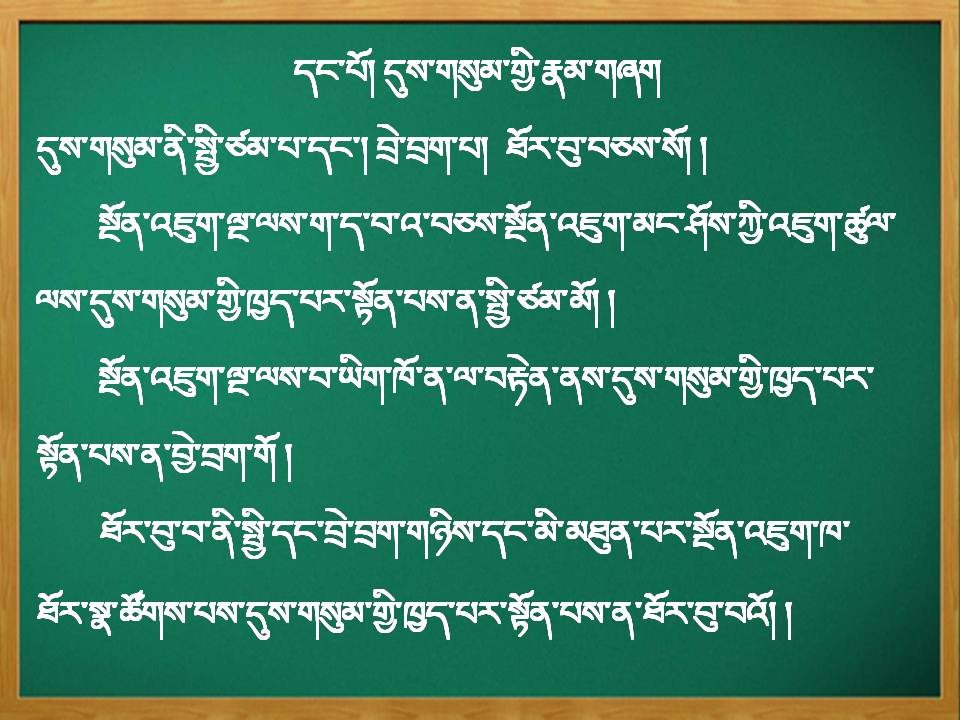 དང་པོ། དུས་གསུམ་གྱི་རྣམ་གཞག
དུས་གསུམ་ནི་སྤྱི་ཙམ་པ་དང་། བྲེ་བྲག་པ། ཐོར་བུ་བཅས་སོ། །
སྔོན་འཇུག་ལྔ་ལས་ག་ད་བ་འ་བཅས་སྔོན་འཇུག་མང་ཤོས་ཀྱི་འཇུག་ཚུལ་
ལས་དུས་གསུམ་གྱི་ཁྱད་པར་སྟོན་པས་ན་སྤྱི་ཙམ་མོ། །
སྔོན་འཇུག་ལྔ་ལས་བ་ཡིག་ཁོ་ན་ལ་བརྟེན་ནས་དུས་གསུམ་གྱི་ཁྱད་པར་
སྟོན་པས་ན་བྱེ་བྲག་གོ །
ཐོར་བུ་བ་ནི་སྤྱི་དང་བྲེ་བྲག་གཉིས་དང་མི་མཐུན་པར་སྔོན་འཇུག་ཁ་
ཐོར་སྣ་ཚོགས་པས་དུས་གསུམ་གྱི་ཁྱད་པར་སྟོན་པས་ན་ཐོར་བུ་བའོ། །